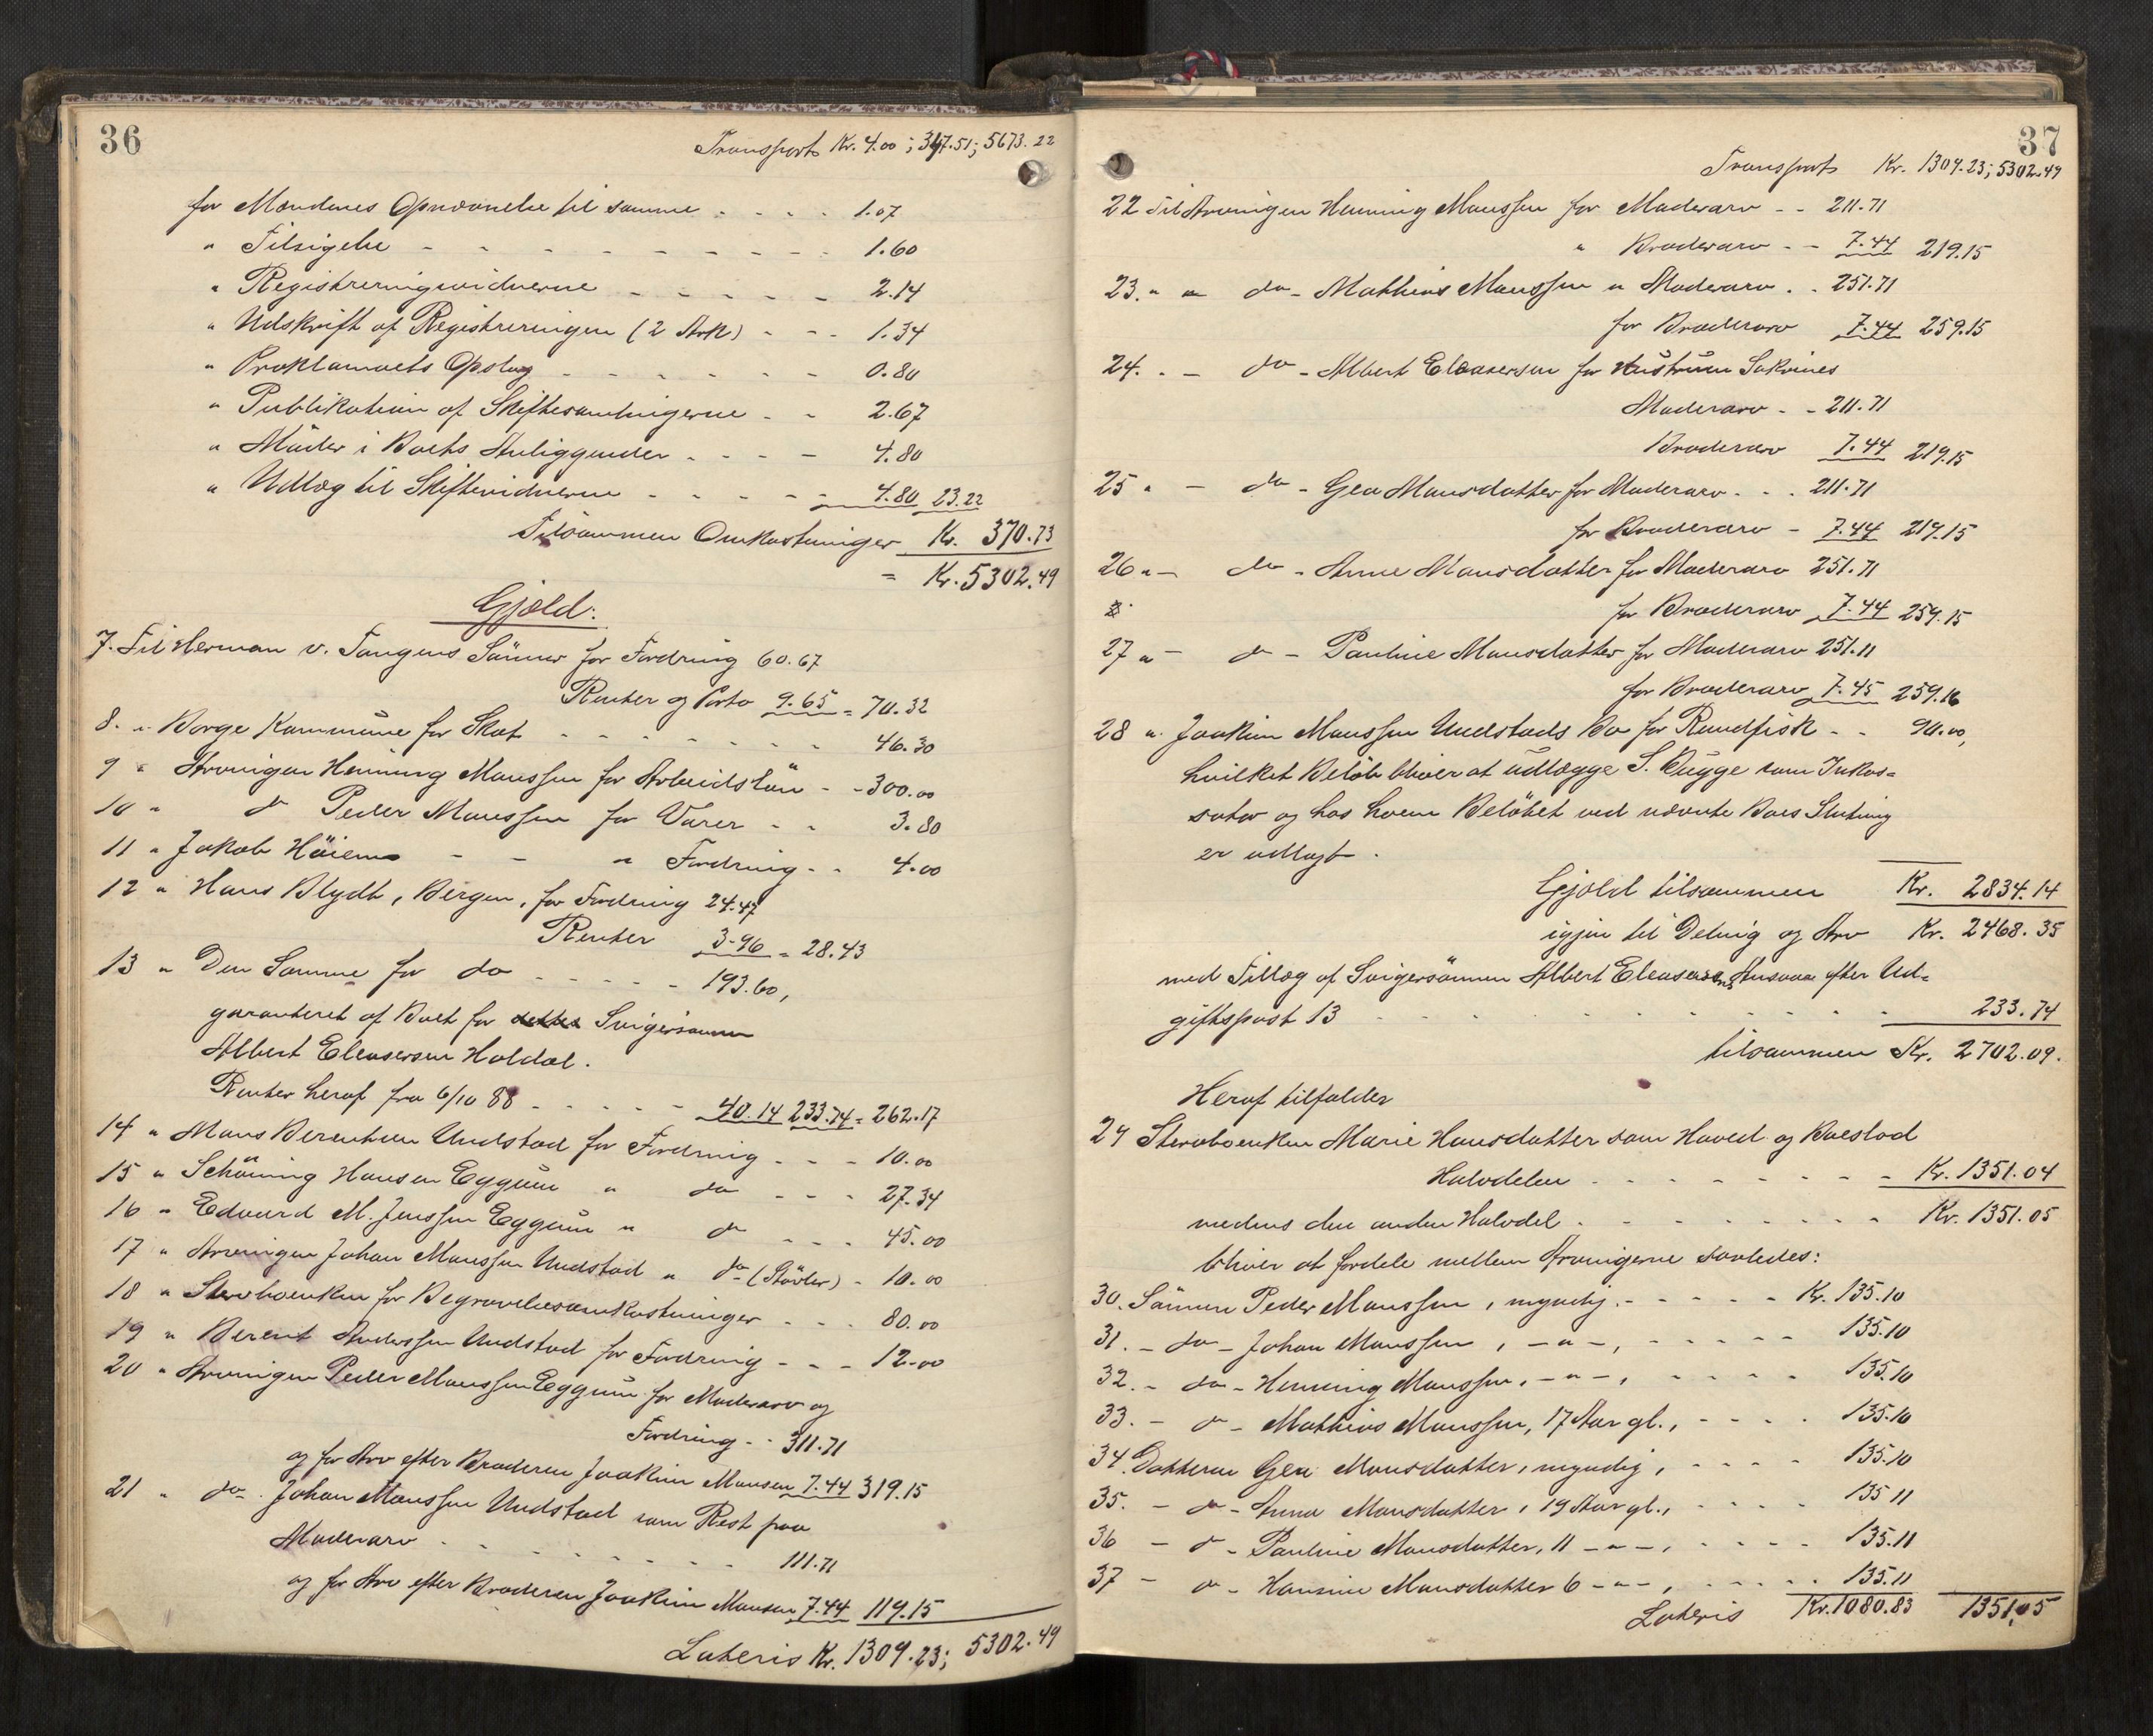 36
Transport Kr. 4.00; 347.51; 5673.22
for Mændenes Opnævnelse til samme - - - - 1.07
" Tilsigelse - - - - - - - - 1.60
" Registreringsvidnerne - - - - - 2.14
" Udskrift af Registreringen (2 Ark) - - - 1.34
" Proklamaets Opslag - - - - - - 0.80
" Publikation af Skiftesamlingerne - - 2.67
" Møder i Boets Anliggender - - - - 4.80
" Udlæg til Skiftevidnerne - - - - - 4.80 23.22
Tilsammen Omkostninger Kr. 370.73
= Kr. 5302.49
Gjæld:
7. Til Herman v. Tangens Sønner for Fordring 60.67
Renter og Porto 9.65 = 70.32
8. " Borge Kommune for Skat - - - - - - - 46.30
9 " Arvingen Henning Monssen for Arbeidsløn - - 300.00
10 " do Peder Monssen for Varer - - 3.80
11 " Jakob Høiem - - " Fordring - - 4.00
12 " Hans Blydt, Bergen, for Fordring 24.47
Renter 3.96 = 28.43
13 " Den Samme for do - - - - - 193.60,
garanteret af Boet for dettes Svigersønn
Albert Eleasersen Holdal.
Renter heraf fra 6/10 88 - - - - - 40.14 233.74 = 262.17
14 " Mons Berentsen Undstad for Fordring - - - 10.00
15 " Schøning Hansen Eggum " do - - - 27.34
16 " Edvard M. Jenssen Eggum " do - - - 45.00
17 " Arvingen Johan Monssen Undstad " do (Støvler) - 10.00
18 " Stervboenken for Begravelsesomkostninger - - - 80.00
19 " Berent Anderssen Undstad for Fordring - - - 12.00
20 " Arvingen Peder Monssen Eggum for Moderarv og
Fordring - - 311.71
og for Arv efter Broderen Joakim Monsen 7.44 319.15
21 " do. Johan Monssen Undstad som Rest paa
Moderarv - - - - - - - - - 111.71
og for Arv efter Broderen Joakim Monsen 7.44 119.15
Lateris Kr. 1309.23; 5302.49
37
Transport Kr. 1309.23; 5302.49
22 Til Arvingen Henning Monssen for Moderarv - - 211.71
" Broderarv - - 7.44 219.15
23. " " do - Mathias Monssen " Moderarv . . 251.71
for Broderarv 7.44 259.15
24. " - do - Albert Eleasersen for Hustruen Sakrines
Moderarv - - 211.71
Broderarv 7.44 219.15
25 " - do - Gea Monsdatter for Moderarv - - . 211.71
for Broderarv - 7.44 219.15
26 " - do - Anne Monsdatter for Moderarv 251.71
for Broderarv 7.44 259.15
27 " - do - Pauline Monsdatter for Moderarv 251.71
for Broderarv 7.45 259.16
28 " Joakim Monssen Undstads Bo for Rundfisk - - 90.00,
hvilket Beløb bliver at udlægge S. Bugge som Inkas-
sator og hos hvem Beløbet ved nævnte Boes Slutning
er udlagt.
Gjæld tilsammen Kr. 2834.14
igjen til Deling og Arv Kr. 2468.35
med Tillæg af Svigersønnen Albert Eleasersens Ansvar efter Ud-
giftspost 13 - - - - - - - - - 233.74
tilsammen Kr. 2702.09.
Heraf tilfalder
29 Stervboenken Marie Hansdatter som Hoved og Boeslod
Halvdelen - - - - - - - - Kr. 1351.04
medens den anden Halvdel - - - - - - - - Kr. 1351.05
bliver at fordele mellem Arvingerne saaledes:
30. Sønnen Peder Monssen, myndig - - - - - Kr. 135.10
31. - do - Johan Monssen, - " -, - - - - - 135.10
32. - do - Henning Monssen, - " -, - - - - 135.10
33. - do - Mathias Monssen, 17 Aar gl., - - - - 135.10
34. Datteren Gea Monsdatter, myndig, - - - - 135.10
35. - do - Anna Monsdatter, 19 Aar gl., - - - - 135.11
36 - do - Pauline Monsdatter, 11 - " -, - - - - 135.11
37 - do - Hansine Monsdatter 6 - " -, - - - - 135.11
Lateris Kr. 1080.83 1351.05